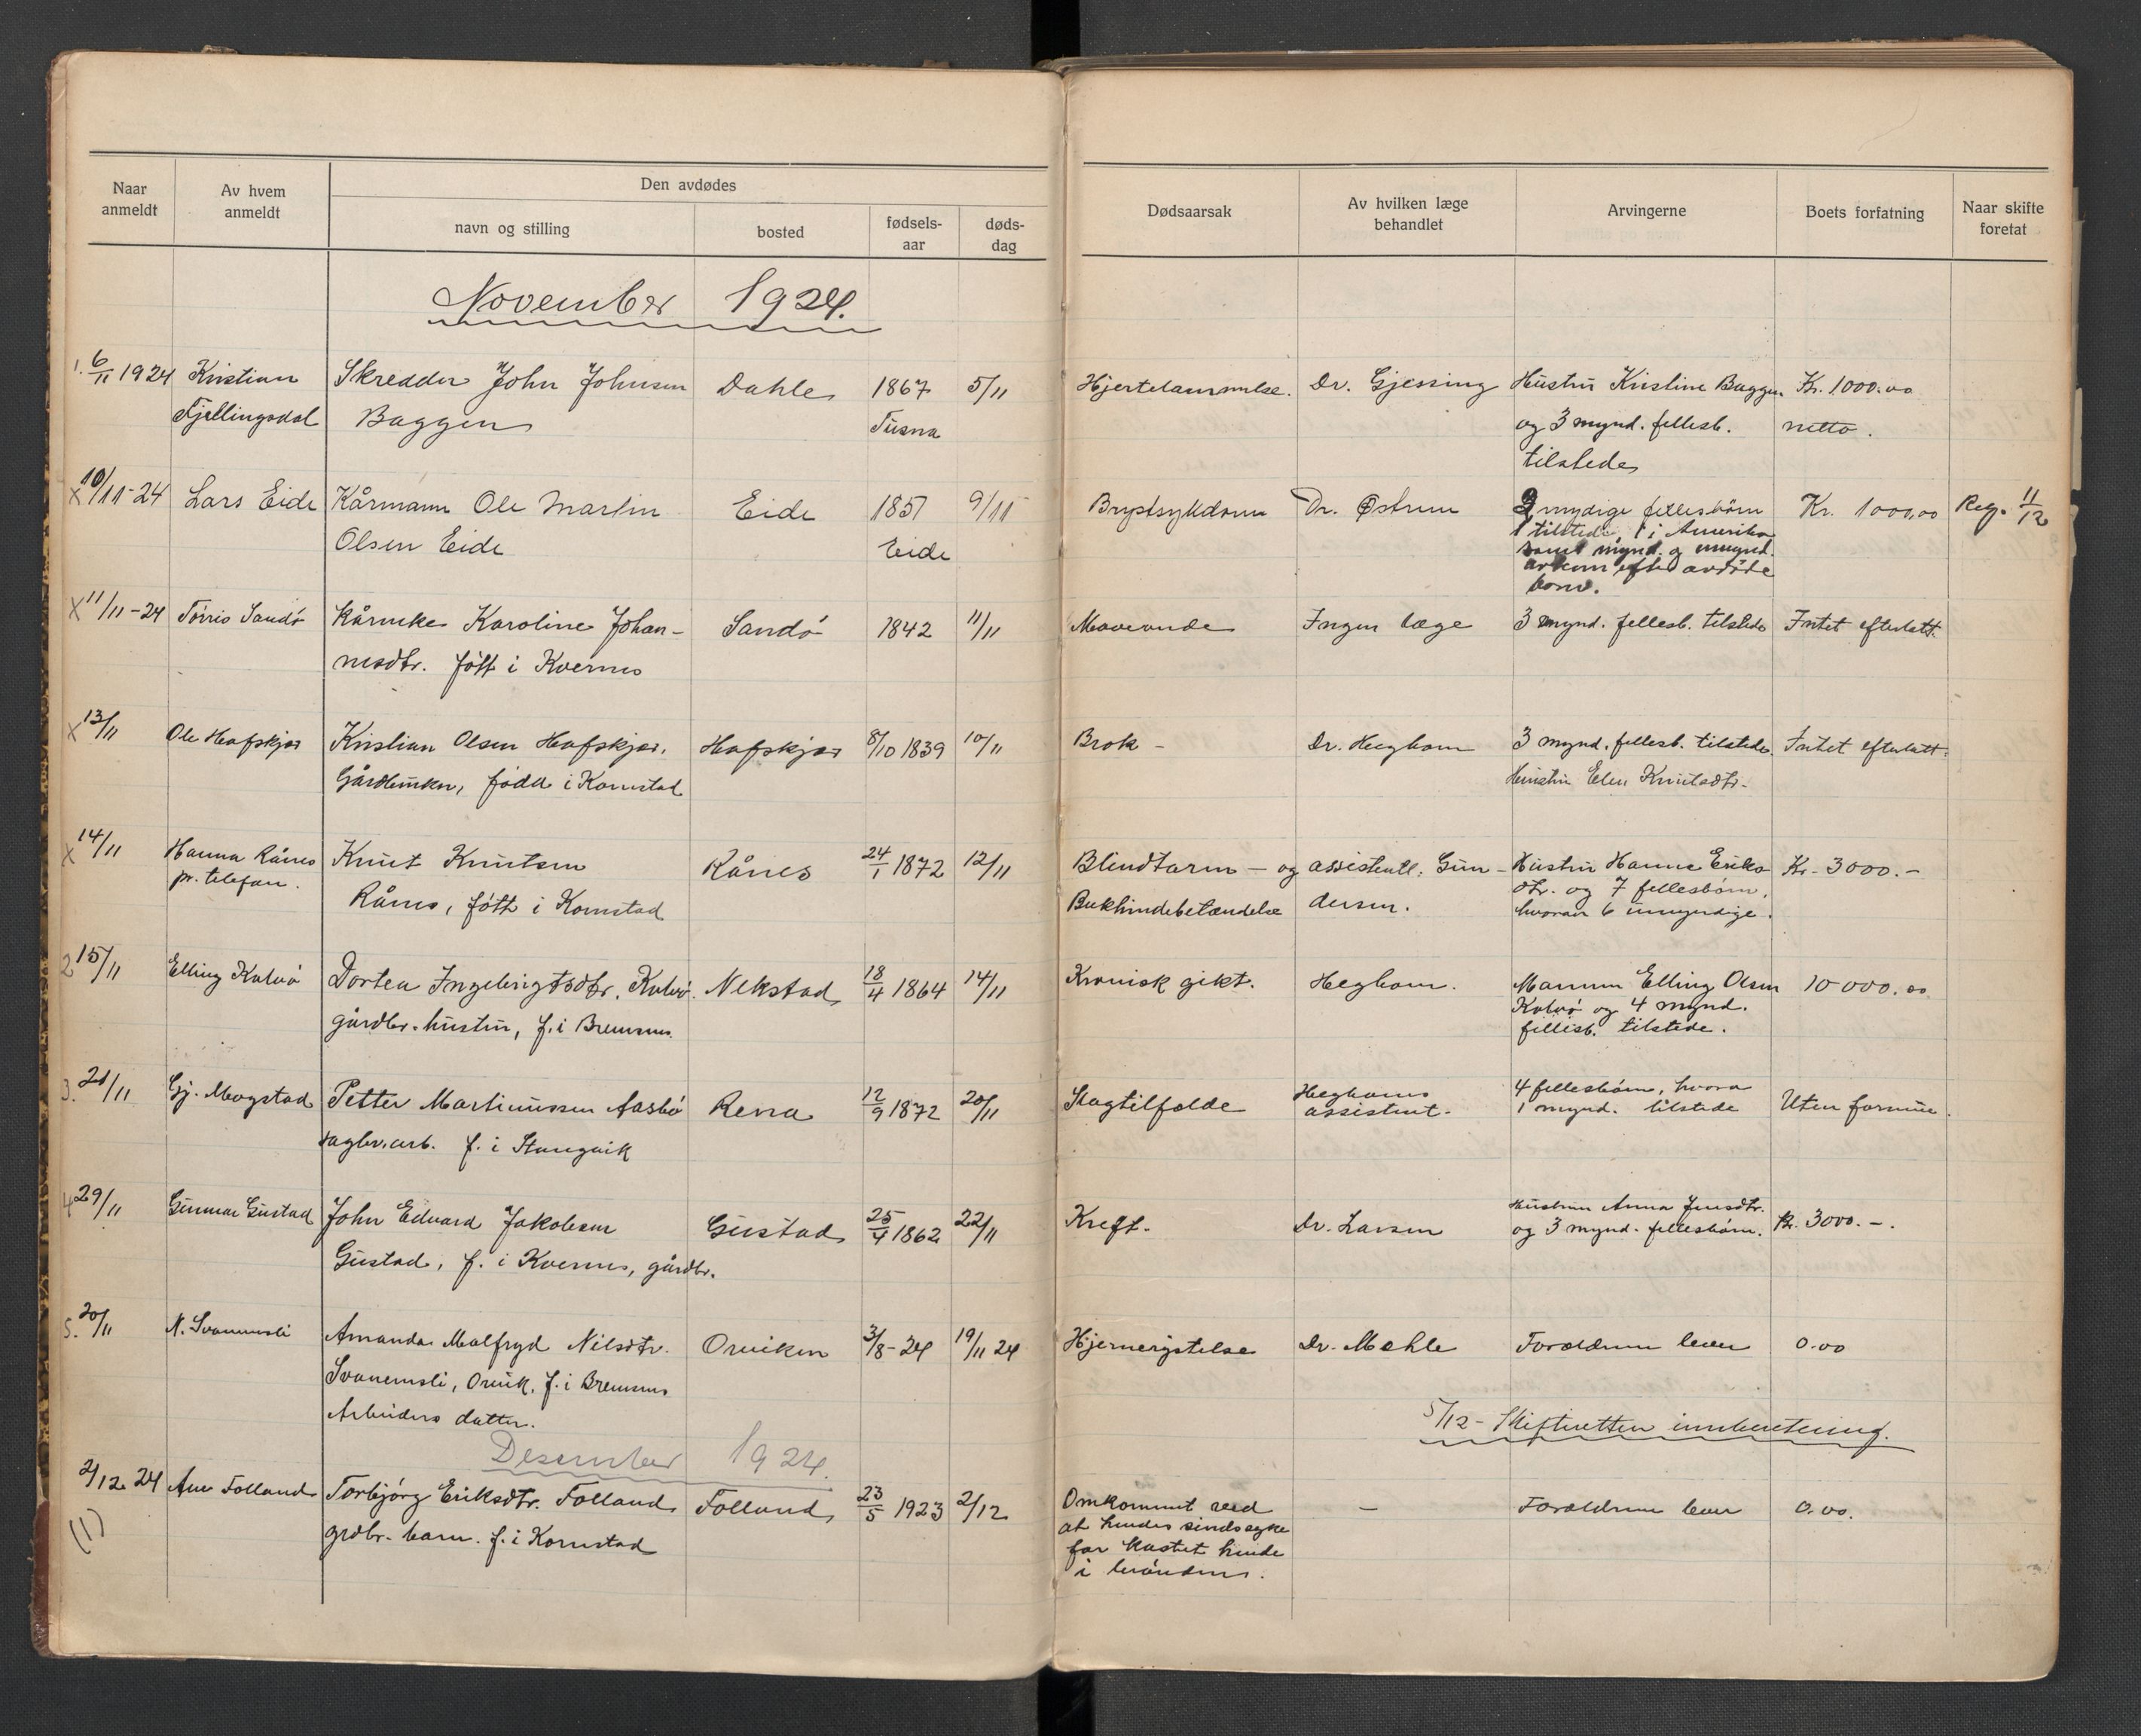 Naar anmeldt
Av hvem anmeldt
Den avdødes
navn og stilling
bosted
fødsels-aar
døds-dag
Dødsaarsak
Av hvilken læge behandlet
Arvingerne
Boets forfatning
Naar skifte foretat
November 1924.
1. 6/11 1924 Kristian Skredder John Johnsen Dahle 1867 5/11 Hjertelammelse. Dr. Gjessing Hustru Kristine Baggen Kr. 1000.00
Fjellingsdal Baggen Tusna og 3 mynd. fellesb. netto.
tilstede
x 10/11-24 Lars Eide Kårmann Ole Martin Eide 1851 9/11 Brystsykdom Dr. Østrem 2 myndige fellesbörn Kr. 1000,00 Reg. 11/12
Olsen Eide Eide 1 tilstede, 1 i Amerika
samt mynd. og umynd.
avkom efter avdöde
born.
x 11/11-24 Törris Sandö Kårenke Karoline Johan- Sandö 1842 11/11 Maveonde Ingen læge 3 mynd. fellesb. tilstede Intet efterlatt.
nesdtr. fött i Kvernes
x 13/11 Ole Hafskjær Kristian Olsen Hafskjær. Hafskjær 8/10 1839 10/11 Brok - Dr. Heghom 3 mynd. fellesb. tilstede. Intet efterlatt.
Gårdbruker, född i Kornstad Hustru Elen Knutsdtr.
x 14/11 Hanna Rånes Knut Knutsen Rånes 24/1 1872 12/11 Blindtarm - og assistentl. Gun- Hustru Hanna Eriks- Kr. 3000.-
pr. telefon. Rånes, fött i Kornstad Bukhindebetændelse dersen. dtr. og 7 fellesbörn,
hvorav 6 umyndige.
2 15/11 Elling Kalvö Dortea Ingebrigtsdtr. Kalvö. Nekstad 18/4 1864 14/11 Kronisk gikt. Heghom. Mannen Elling Olsen 10 000.00
gårdbr. hustru, f. i Bremsnes. Kalvö og 4 mynd.
fellesb. tilstede.
3. 21/11 Gj. Mogstad Petter Martinussen Aasbö Rena 12/9 1872 20/11 Slagtilfelde Heghoms 4 fellesbörn, hvorav
sagbr.arb. f. i Stangvik assistent. 1 mynd. tilstede Uten formue.
4 29/11 Gunnar Gustad John Edvard Jakobsen Gustad 25/4 1862 22/11 Kreft. Dr. Larsen Hustrun Anna Jensdtr.
Gustad, f. i Kvernes, gårdbr. og 3 mynd. fellesbörn. Kr. 3000.-.
5. 20/11 N. Svanemsli Amanda Malfryd Nilsdtr. Orviken 3/8-24 19/11 24 Hjernerystelse Dr. Mohle Forældrene lever 0.00
Svanemsli, Orvik, f. i Bremsnes
Arbeiders datter.
5/12 - Skifteretten innberetning.
Desember 1924.
2/12 24 Ane Folland Torbjörg Eriksdtr. Folland Folland 23/5 1923 2/12 Omkommet ved - Forældrene lever 0.00.
(1) grdbr. barn. f. i Kornstad at hendes sindssyke
far kastet hende
i brönden.